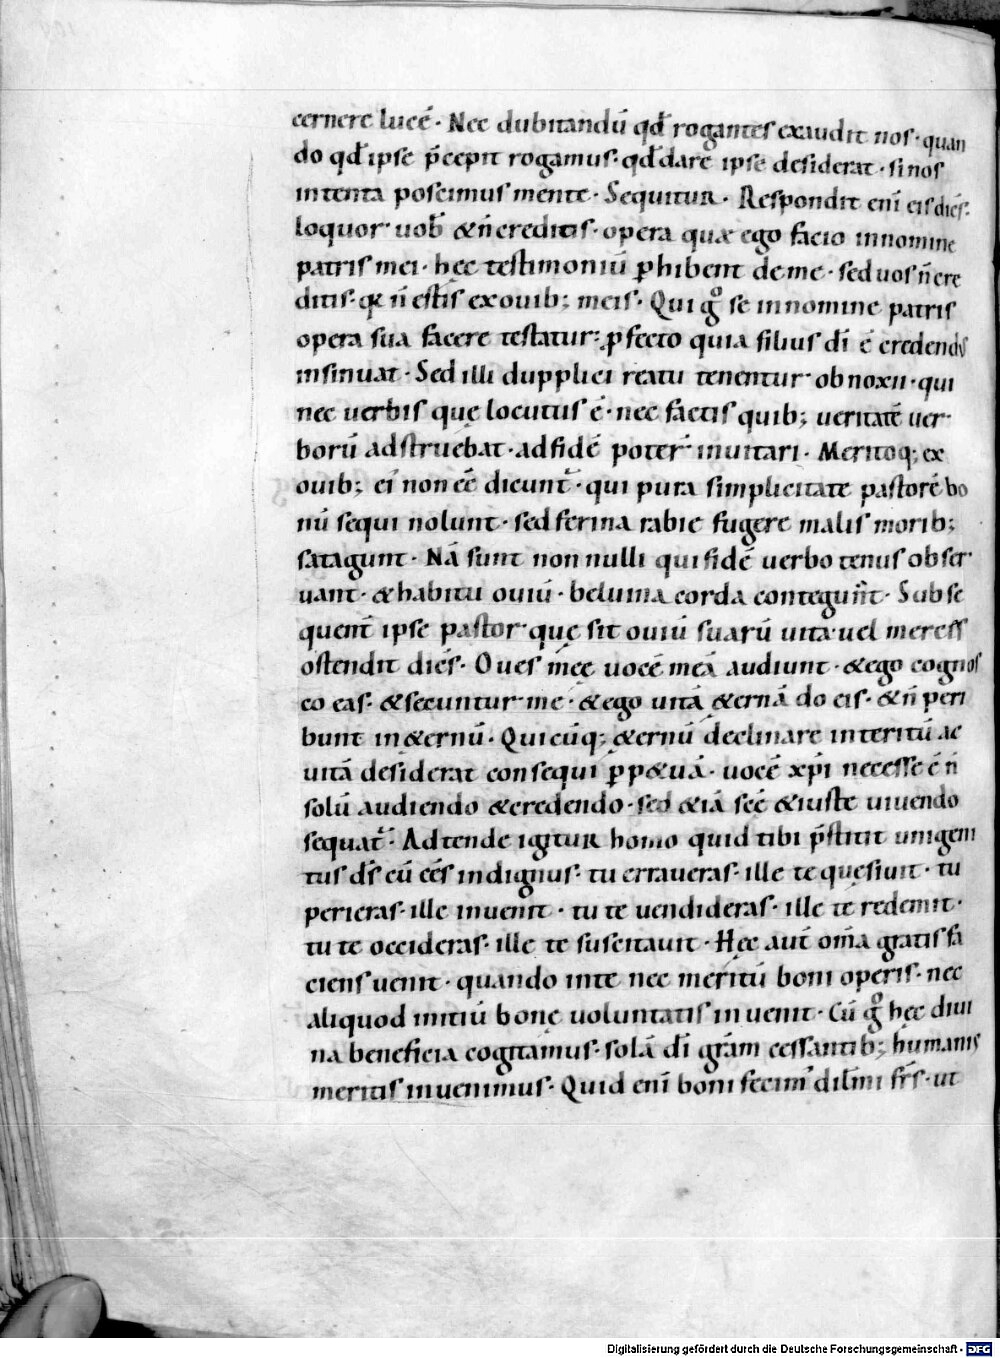 cernere lucē· Nec dubitandū qđ rogantes exaudit nos· quan
do qđ ipse p̄cepit rogamus· qđ dare ipse desiderat· si nos
intenta poscimus mente· Sequitur· Respondit enī eis diēs·
loquor uob̄ & n̄ creditis· opera quæ ego facio in nomine
patris mei· hęc testimoniū ꝑhibent de me· sed uos n̄ cre
ditis· qr n̄ estis ex ouib; meis· Qui gͦ se in nomine patris
opera sua facere testatur· ꝓfecto quia filius dī ē credendus
insinuat· Sed illi dupplici reatu tenentur obnoxii· qui
nec uerbis quę locutus ē· nec factis quib; ueritatē uer
borū adstruebat· ad fidē poter̄ inuitari· Meritoq; ex
ouib; eī non eē dicunt᷑· qui pura simplicitate pastorē bo
nū sequi nolunt· sed ferina rabie fugere malis morib;
satagunt· Nā sunt non nulli qui fidē uerbo tenus obser
uant· & habitu ouiū· beluina corda contegun̄t· Subse
quent̄ ipse pastor· que sit ouiū suarū uita· uel mercess
ostendit diēs· Oues męę uocē meā audiunt· & ego cognos
co eas· & secuntur me· & ego uitā &ernā do eis· & n̄ peri
bunt in &ernū· Quicūq; &ernū declinare interitū ac
uitā desiderat consequi ꝑp&uā· uocē xp̄i necesse ē n̄
solū audiendo & credendo· sed &iā scē & iuste uiuendo
sequat᷑· Adtende igitur homo quid tibi p̄stitit unigeni
tus dś cū eēs indignus· tu erraueras· ille te quęsiuit· tu
perieras· ille inuenit· tu te uendideras· ille te redemit·
tu te occideras· ille te suscitauit· Hęc aut̄ om̄a gratis fa
ciens uenit· quando in te nec meritū boni operis· nec
aliquod initiū bonę uoluntatis inuenit· Cū gͦ hęc diui
na beneficia cogitamus· solā dī grām cessantib; humanis
meritis inuenimus· Quid enī boni fecim᾽ dilm̄i frs̄· ut
Digitalisierung gefördert durch die Deutsche Forschungsgemeinschaft - DFG